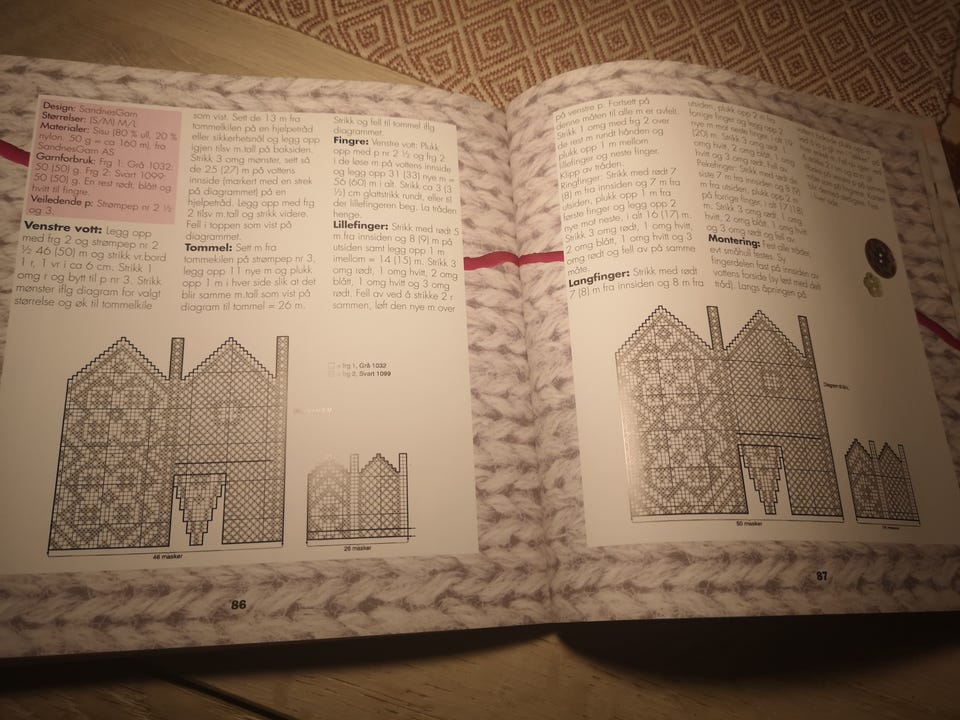 Design: SandnesGarn
Størrelser: (S/M) M/L
Materialer: Sisu (80 % ull, 20 %
nylon. 50 g = ca 160 m), fra
SandnesGarn AS
Garnforbruk: Frg 1: Grå 1032:
50 (50) g. Frg 2: Svart 1099:
50 (50) g. En rest rødt, blått og
hvitt til fingre.
Veiledende p: Strømpep nr 2 ½
og 3.
Venstre vott: Legg opp
med frg 2 og strømpep nr 2
½ 46 (50) m og strikk vr.bord
1 r, 1 vr i ca 6 cm. Strikk 1
omg r og bytt til p nr 3. Strikk
mønster iflg diagram for valgt
størrelse og øk til tommelkile
som vist. Sett de 13 m fra
tommelkilen på en hjelpetråd
eller sikkerhetsnål og legg opp
igjen tilsv m.tall på baksiden.
Strikk 3 omg mønster, sett så
de 25 (27) m på vottens
innside (markert med en strek
på diagrammet) på en
hjelpetråd. Legg opp med frg
2 tilsv m.tall og strikk videre.
Fell i toppen som vist på
diagrammet.
Tommel: Sett m fra
tommelkilen på strømpep nr 3,
legg opp 11 nye m og plukk
opp 1 m i hver side slik at det
blir samme m.tall som vist på
diagram til tommel = 26 m.
Strikk og fell til tommel iflg
diagrammet.
Fingre: Venstre vott: Plukk
opp med p nr 2 ½ og frg 2
i de løse m på vottens innside
og legg opp 31 (33) nye m =
56 (60) m i alt. Strikk ca 3 (3
½) cm glattstrikk rundt, eller til
der lillefingeren beg. La tråden
henge.
Lillefinger: Strikk med rødt 5
m fra innsiden og 8 (9) m på
utsiden samt legg opp 1 m
imellom = 14 (15) m. Strikk 3
omg rødt, 1 omg hvitt, 2 omg
blått, 1 omg hvitt og 3 omg
rødt. Fell av ved å strikke 2 r
sammen, løft den nye m over
= frg 1, Grå 1032
= frg 2, Svart 1099
46 masker
26 masker
86
på venstre p. Fortsett på
denne måten til alle m er avfelt.
Strikk 1 omg med frg 2 over
de rest m rundt hånden og
plukk opp 1 m mellom
lillefinger og neste finger.
Klipp av tråden.
Ringfinger: Strikk med rødt 7
(8) m fra innsiden og 7 m fra
utsiden, plukk opp 1 m fra
første finger og legg opp 2
nye m mot neste, i alt 16 (17) m.
Strikk 3 omg rødt, 1 omg hvitt,
2 omg blått, 1 omg hvitt og 3
omg rødt og fell av på samme
måte.
Langfinger: Strikk med rødt
7 (8) m fra innsiden og 8 m fra
utsiden, plukk opp 2 m fra
forrige finger og legg opp
nye m mot neste finger
(20) m. Strikk 3 omg rødt, 1
omg hvitt, 2 omg blått, 1 omg
hvitt og 3 omg rødt og fell av.
Pekefinger: Strikk med rødt de
siste 7 m fra innsiden og 8 (9)
m fra utsiden, plukk opp 2 m
på forrige finger, i alt 17 (18)
m. Strikk 3 omg rødt, 1 omg
hvitt, 2 omg blått, 1 omg hvitt
og 3 omg rødt og fell av.
Montering: Fest alle tråder,
evt småhull testes. Sy
fingerdelen fast på innsiden av
vottens forside (sy test med delt
tråd). Langs åpningen på
Diagram til M/L
50 masker
26 masker
87